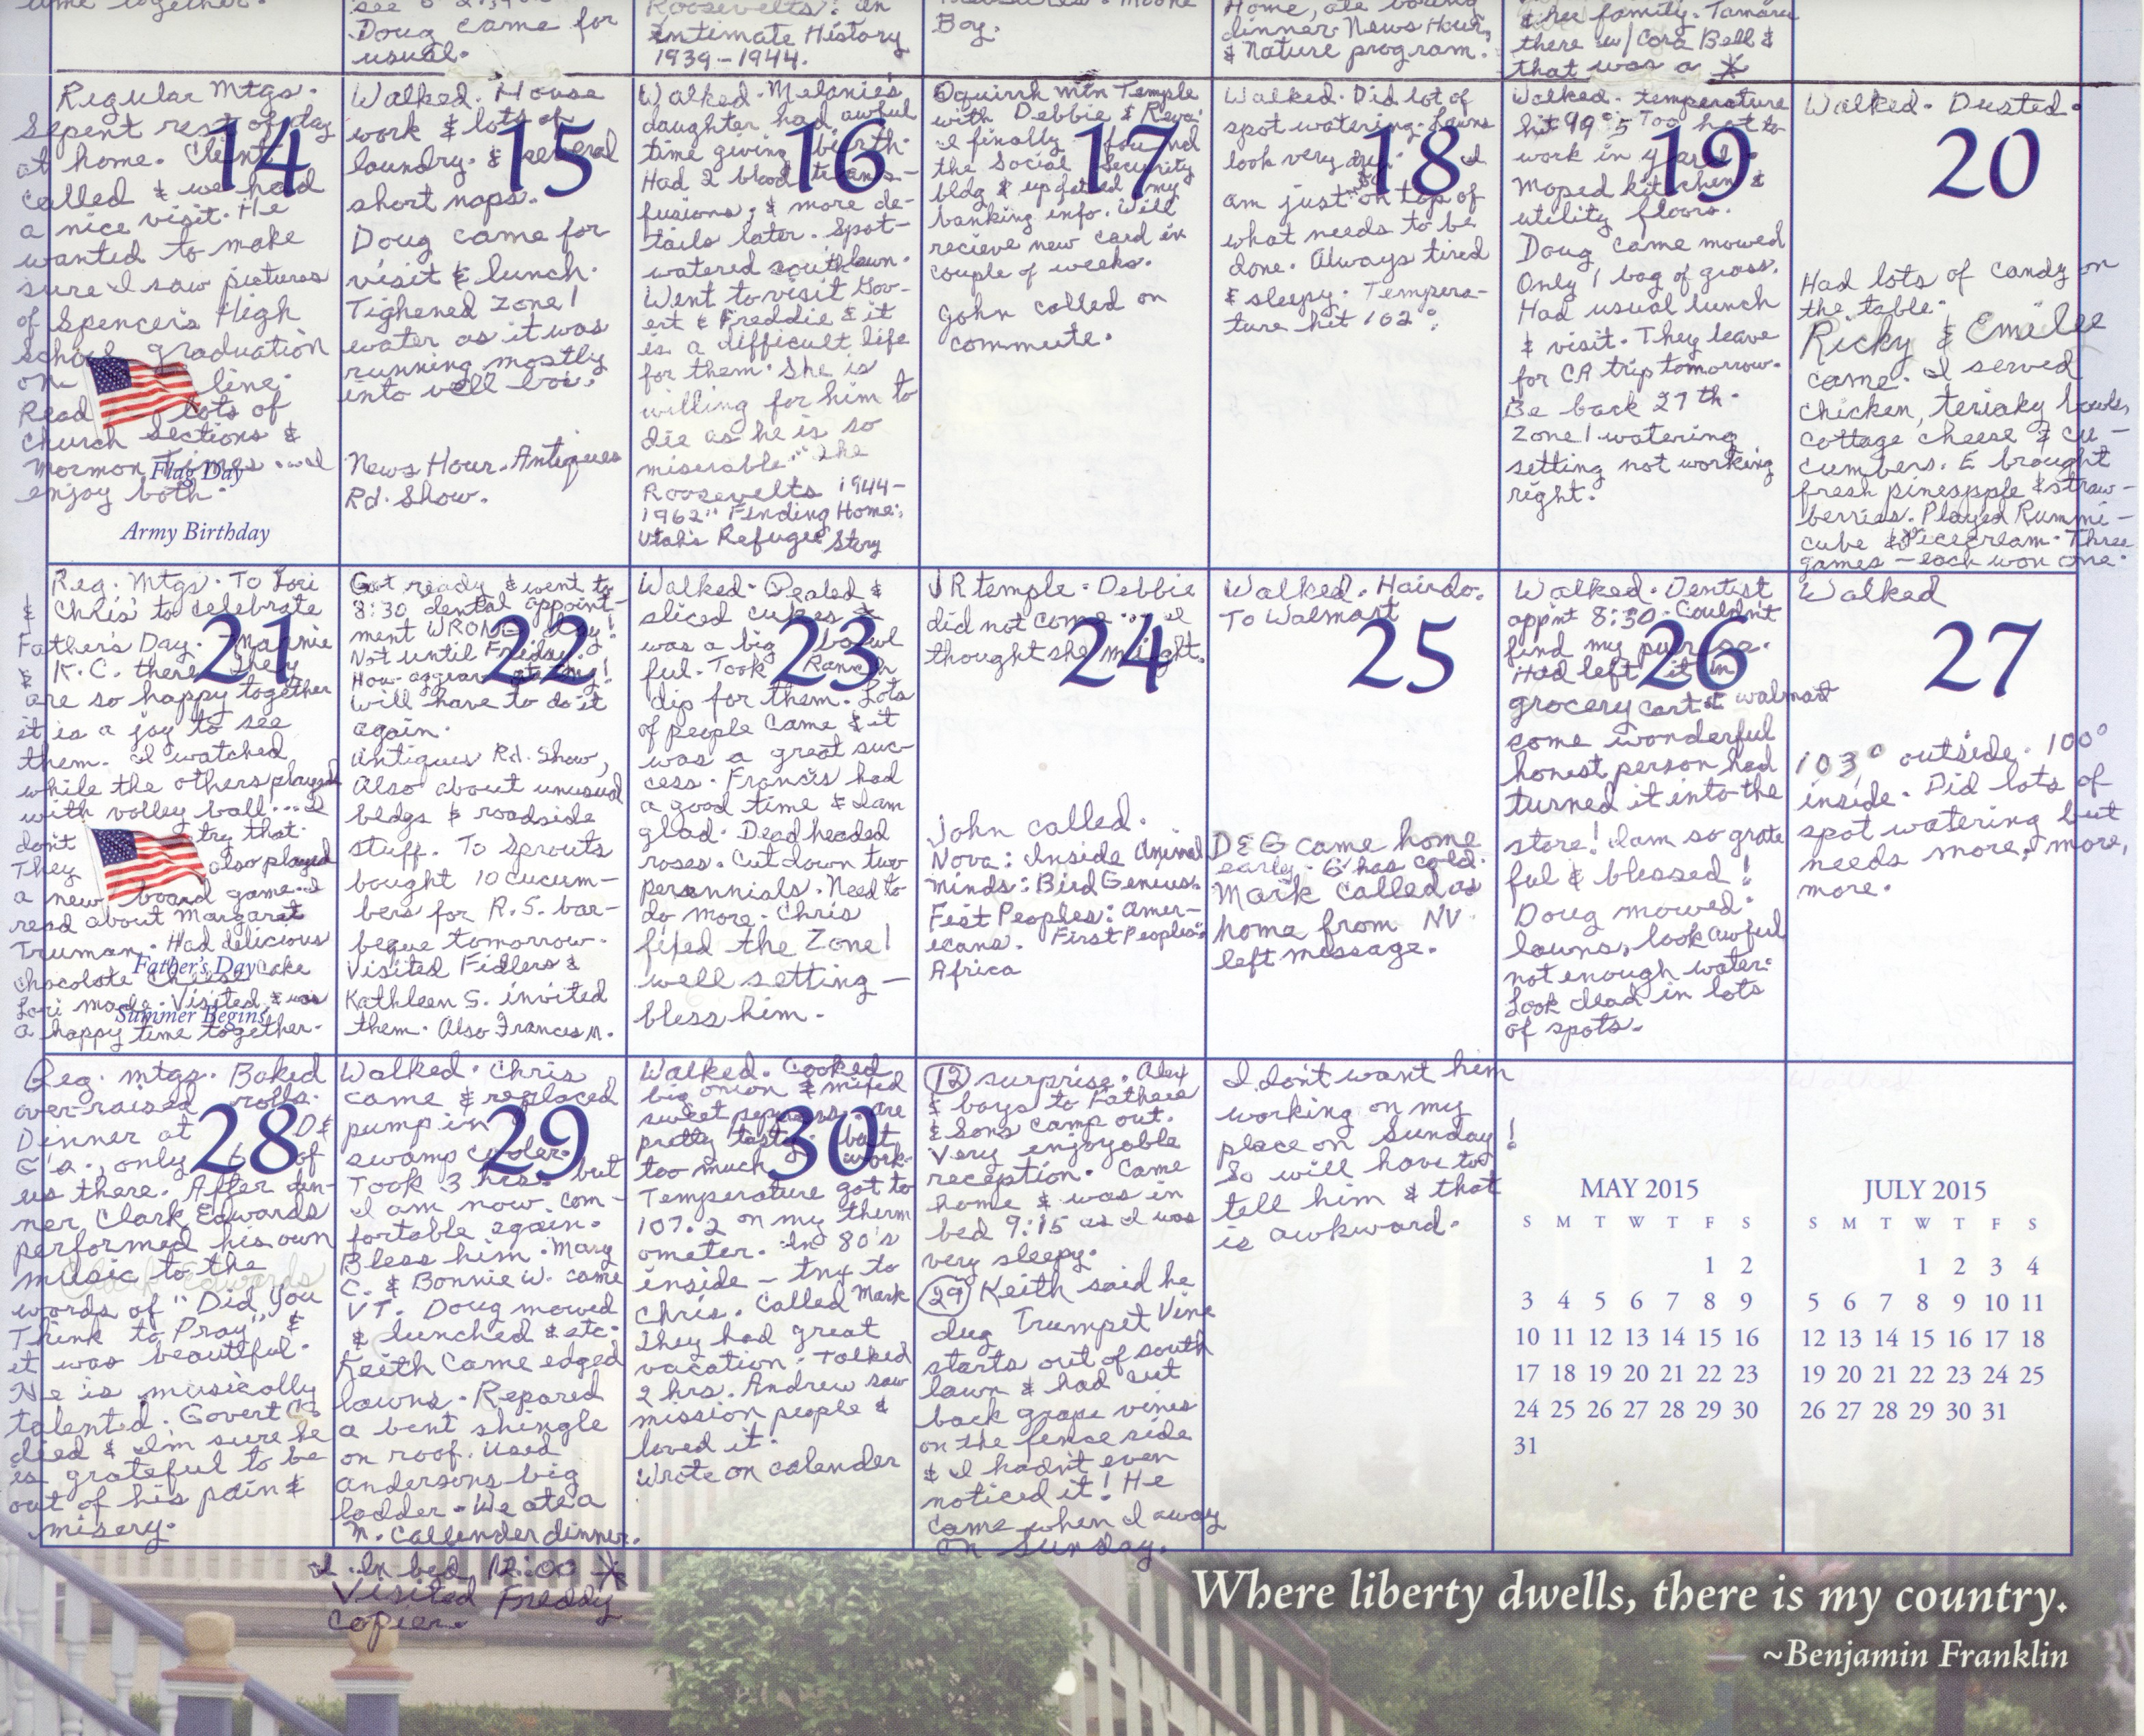 came together.
see
Doug came for
usual.
Roosevelts: An
Intimate History
1939-1944.
Boy.
Home, ate boring
dinner News Hour,
& Nature program.
& her family. Tamara
there w/Cora Bell &
that was a *
Regular Mtgs.
Spent rest of day
at home. Client
called & we had
a nice visit. He
wanted to make
sure I saw pictures
of Spencer's High
School graduation
on line.
Read lots of
Church Sections &
Mormon Times ... I
enjoy both.
14
Flag Day
Army Birthday
Walked. House
work & lots of
laundry. & several
short naps.
Doug came for
visit & lunch.
Tighened Zone 1
water as it was
running mostly
into well box.
News Hour. Antiques
Rd. Show.
15
Walked. Melanie's
daughter had awful
time giving birth.
Had 2 blood trans-
fusions, & more de-
tails later. Spot-
watered south lawn.
Went to visit Gov-
ert & Freddie & it
is a difficult life
for them. She is
willing for him to
die as he is so
miserable. "The
Roosevelts 1944-
1962" Finding Home:
Utah's Refugee Story
16
Oquirrh Mtn Temple
with Debbie & Reva.
I finally found
the Social Security
bldg & updated my
banking info. Will
recieve new card in
couple of weeks.
John called on
commute.
17
Walked. Did lot of
spot watering. Lawns
look very dry. I
am just not on top of
what needs to be
done. Always tired
& sleepy. Tempera-
ture hit 102°.
18
Walked. temperature
hit 99°5 Too hot to
work in yard.
Moped kitchen &
utility floors.
Doug came mowed
Only 1 bag of grass.
Had usual lunch
& visit. They leave
for CA trip tomorrow.
Be back 27th.
Zone 1 watering
setting not working
right.
19
Walked. Dusted.
Had lots of candy on
the table.
Ricky & Emilee
came. I served
chicken, teriaky bowls,
cottage cheese & cu-
cumbers. E brought
fresh pineapple & straw-
berries. Played Rummi-
cube & icecream. Three
games - each won one.
20
Reg. Mtgs. To Lori
& Chris' to celebrate
Father's Day. Marnie
& K.C. there. They
are so happy together
it is a joy to see
them. I watched
while the others played
with volley ball.... I
don't try that.
They also played
a new board game...I
read about Margaret
Truman. Had delicious
chocolate cheese cake
Lori made. Visited & was
a happy time together.
21
Father's Day
Summer Begins
Got ready & went to
8:30 dental appoint-
ment WRONG day!
Not until Friday.
How aggravating!
will have to do it
again.
Antiques Rd. Show,
Also about unusual
bldgs & roadside
stuff. To Sprouts
bought 10 cucum-
bers for R.S. bar-
beque tomorrow.
Visited Fidlers &
Kathleen S. invited
them. Also Frances M.
22
Walked. Pealed &
sliced cukes. It
was a big bowl
ful. Took Ranch
dip for them. Lots
of people came & it
was a great suc-
cess. Francis had
a good time & I am
glad. Deadheaded
roses. Cut down two
perennials. Need to
do more. Chris
fixed the Zone 1
well setting -
bless him.
23
JR temple. Debbie
did not come ... I
thought she might.
John called.
Nova: Inside Animal
Minds: Bird Genius.
First Peoples: Amer-
icans. First Peoples:
Africa
24
Walked. Hairdo.
To Walmart
D&G came home
early. G has cold.
Mark called as
home from NV
left message.
25
Walked. Dentist
appnt 8:30. Couldn't
find my purse.
Had left it in
grocery cart & Walmart
some wonderful
honest person had
turned it into the
store! I am so grate
ful & blessed!
Doug mowed.
lawns, look awful
not enough water.
Look dead in lots
of spots.
26
Walked
103° outside. 100°
inside. Did lots of
spot watering but
needs more, more,
more.
27
Reg. mtgs. Baked
over-raised rolls.
Dinner at D&
G's., only 6 of
us there. After din-
ner Clark Edwards
performed his own
music to the
words of "Did You
Think to Pray" &
it was beautiful.
He is musically
talented. Govert
died & I'm sure he
is grateful to be
out of his pain &
misery.
28
Walked. Chris
came & replaced
pump in
swamp cooler.
Took 3 hrs. but
I am now com-
fortable again.
Bless him. Mary
C. & Bonnie W. came
VT. Doug mowed
& lunched & etc.
Keith came edged
lawns. Repared
a bent shingle
on roof. Used
Andersons big
ladder. We ate a
M. Callender dinner.
I. In bed 12:00 *
Visited Freddy
29
Walked. Cooked
big onion & mixed
sweet peppers. are
pretty tasty. but
too much work.
Temperature got to
107.2 on my therm
ometer. In 80's
inside - tnx to
Chris. Called Mark
They had great
vacation. Talked
2 hrs. Andrew saw
mission people &
loved it.
Wrote on calender
30
(12) surprise. Alex
& boys to Fathers
& Sons camp out.
Very enjoyable
reception. Came
home & was in
bed 9:15 as I was
very sleepy.
(29) Keith said he
dug Trumpet Vine
starts out of south
lawn & had cut
back grape vines
on the fence side
& I hadn't even
noticed it! He
came when I away
on Sunday.
I don't want him
working on my
place on Sunday!
So will have to
tell him & that
is awkward.
MAY 2015
S M T W T F S
1 2
3 4 5 6 7 8 9
10 11 12 13 14 15 16
17 18 19 20 21 22 23
24 25 26 27 28 29 30
31
JULY 2015
S M T W T F S
1 2 3 4
5 6 7 8 9 10 11
12 13 14 15 16 17 18
19 20 21 22 23 24 25
26 27 28 29 30 31
Where liberty dwells, there is my country.
~Benjamin Franklin